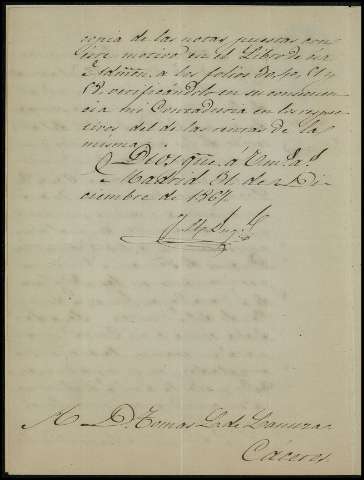 copia de las notas puestas con
este motivo en el Libro de esa
á los folios 50, 51 y
52 verificándolo en su consecuen-
cia mi Contaduria en los respec-
tivos del de las rentas de la
misma
Dios gue. á Vm. a.s
Madrid 31 de Di-
ciembre de 1867.
A D. Tomas L. de Lanuza
Cáceres